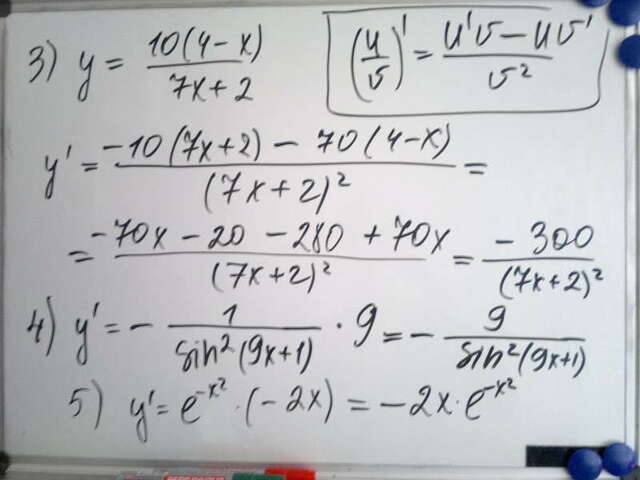 3) y = 10(4-x) / 7x+2
(u/v)' = u'v - uv' / v²
y' = -10(7x+2) - 70(4-x) / (7x+2)² =
= -70x - 20 - 280 + 70x / (7x+2)² = -300 / (7x+2)²
4) y' = - 1 / sin²(9x+1) · 9 = - 9 / sin²(9x+1)
5) y' = e^-x² · (-2x) = -2x · e^-x²